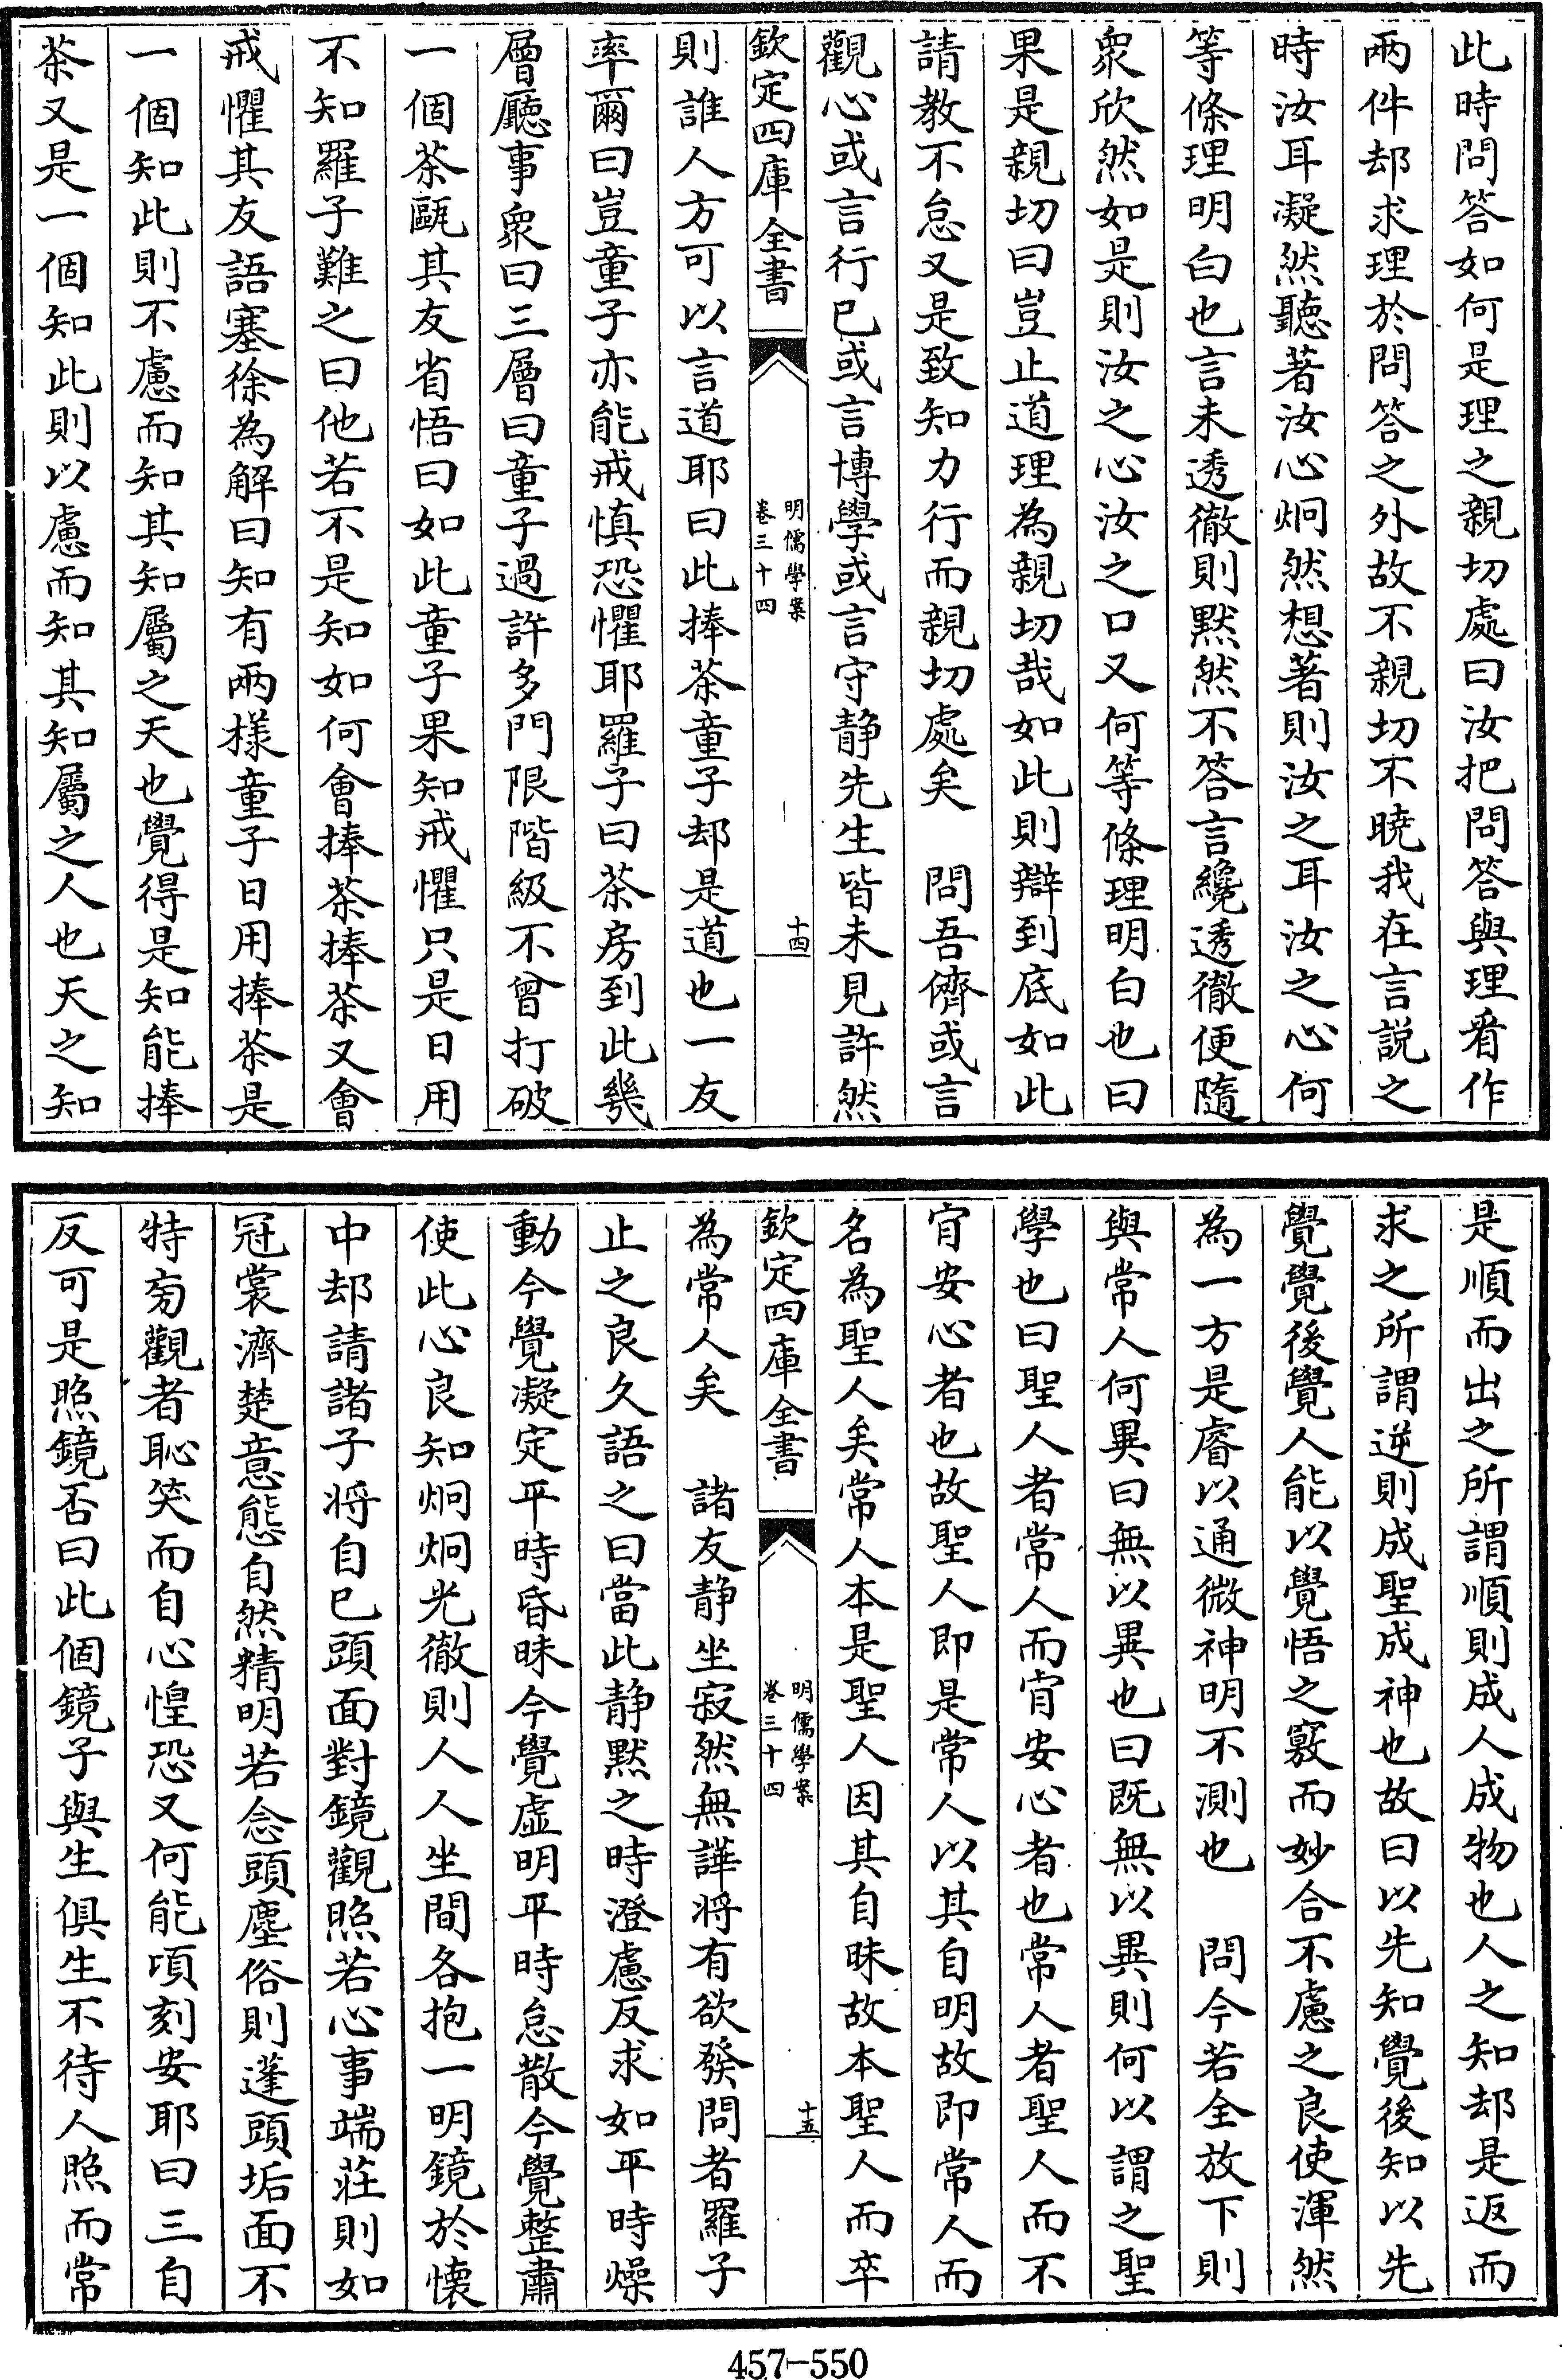 此時問答如何是理之親切處曰汝把問答與理看作
兩件却求理於問答之外故不親切不曉我在言說之
時汝耳凝然聽著汝心炯然想著則汝之耳汝之心何
等條理明白也言未透徹則黙然不答言纔透徹便隨
衆欣然如是則汝之心汝之口又何等條理明白也曰
果是親切曰豈止道理為親切哉如此則辯到底如此
請教不怠又是致知力行而親切處矣　問吾儕或言
觀心或言行已或言博學或言守静先生皆未見許然
欽定四庫全書
明儒學案
卷三十四
十四
則誰人方可以言道耶曰此捧茶童子却是道也一友
率爾曰豈童子亦能戒慎恐懼耶羅子曰茶房到此幾
層廳事衆曰三層曰童子過許多門限階級不曾打破
一個茶甌其友省悟曰如此童子果知戒懼只是日用
不知羅子難之曰他若不是知如何會捧茶捧茶又會
戒懼其友語塞徐為解曰知有兩樣童子日用捧茶是
一個知此則不慮而知其知屬之天也覺得是知能捧
茶又是一個知此則以慮而知其知屬之人也天之知
是順而出之所謂順則成人成物也人之知却是返而
求之所謂逆則成聖成神也故曰以先知覺後知以先
覺覺後覺人能以覺悟之竅而妙合不慮之良使渾然
為一方是睿以通微神明不測也　問今若全放下則
與常人何異曰無以異也曰既無以異則何以謂之聖
學也曰聖人者常人而肯安心者也常人者聖人而不
肯安心者也故聖人即是常人以其自明故即常人而
名為聖人矣常人本是聖人因其自昧故本聖人而卒
欽定四庫全書
明儒學案
卷三十四
十五
為常人矣　諸友静坐寂然無譁将有欲發問者羅子
止之良久語之曰當此静黙之時澄慮反求如平時燥
動今覺凝定平時昏昧今覺虚明平時怠散今覺整肅
使此心良知炯炯光徹則人人坐間各抱一明鏡於懷
中却請諸子将自已頭面對鏡觀照若心事端莊則如
冠裳濟楚意態自然精明若念頭塵俗則蓬頭垢面不
特旁觀者恥笑而自心惶恐又何能頃刻安耶曰三自
反可是照鏡否曰此個鏡子與生俱生不待人照而常
457-550